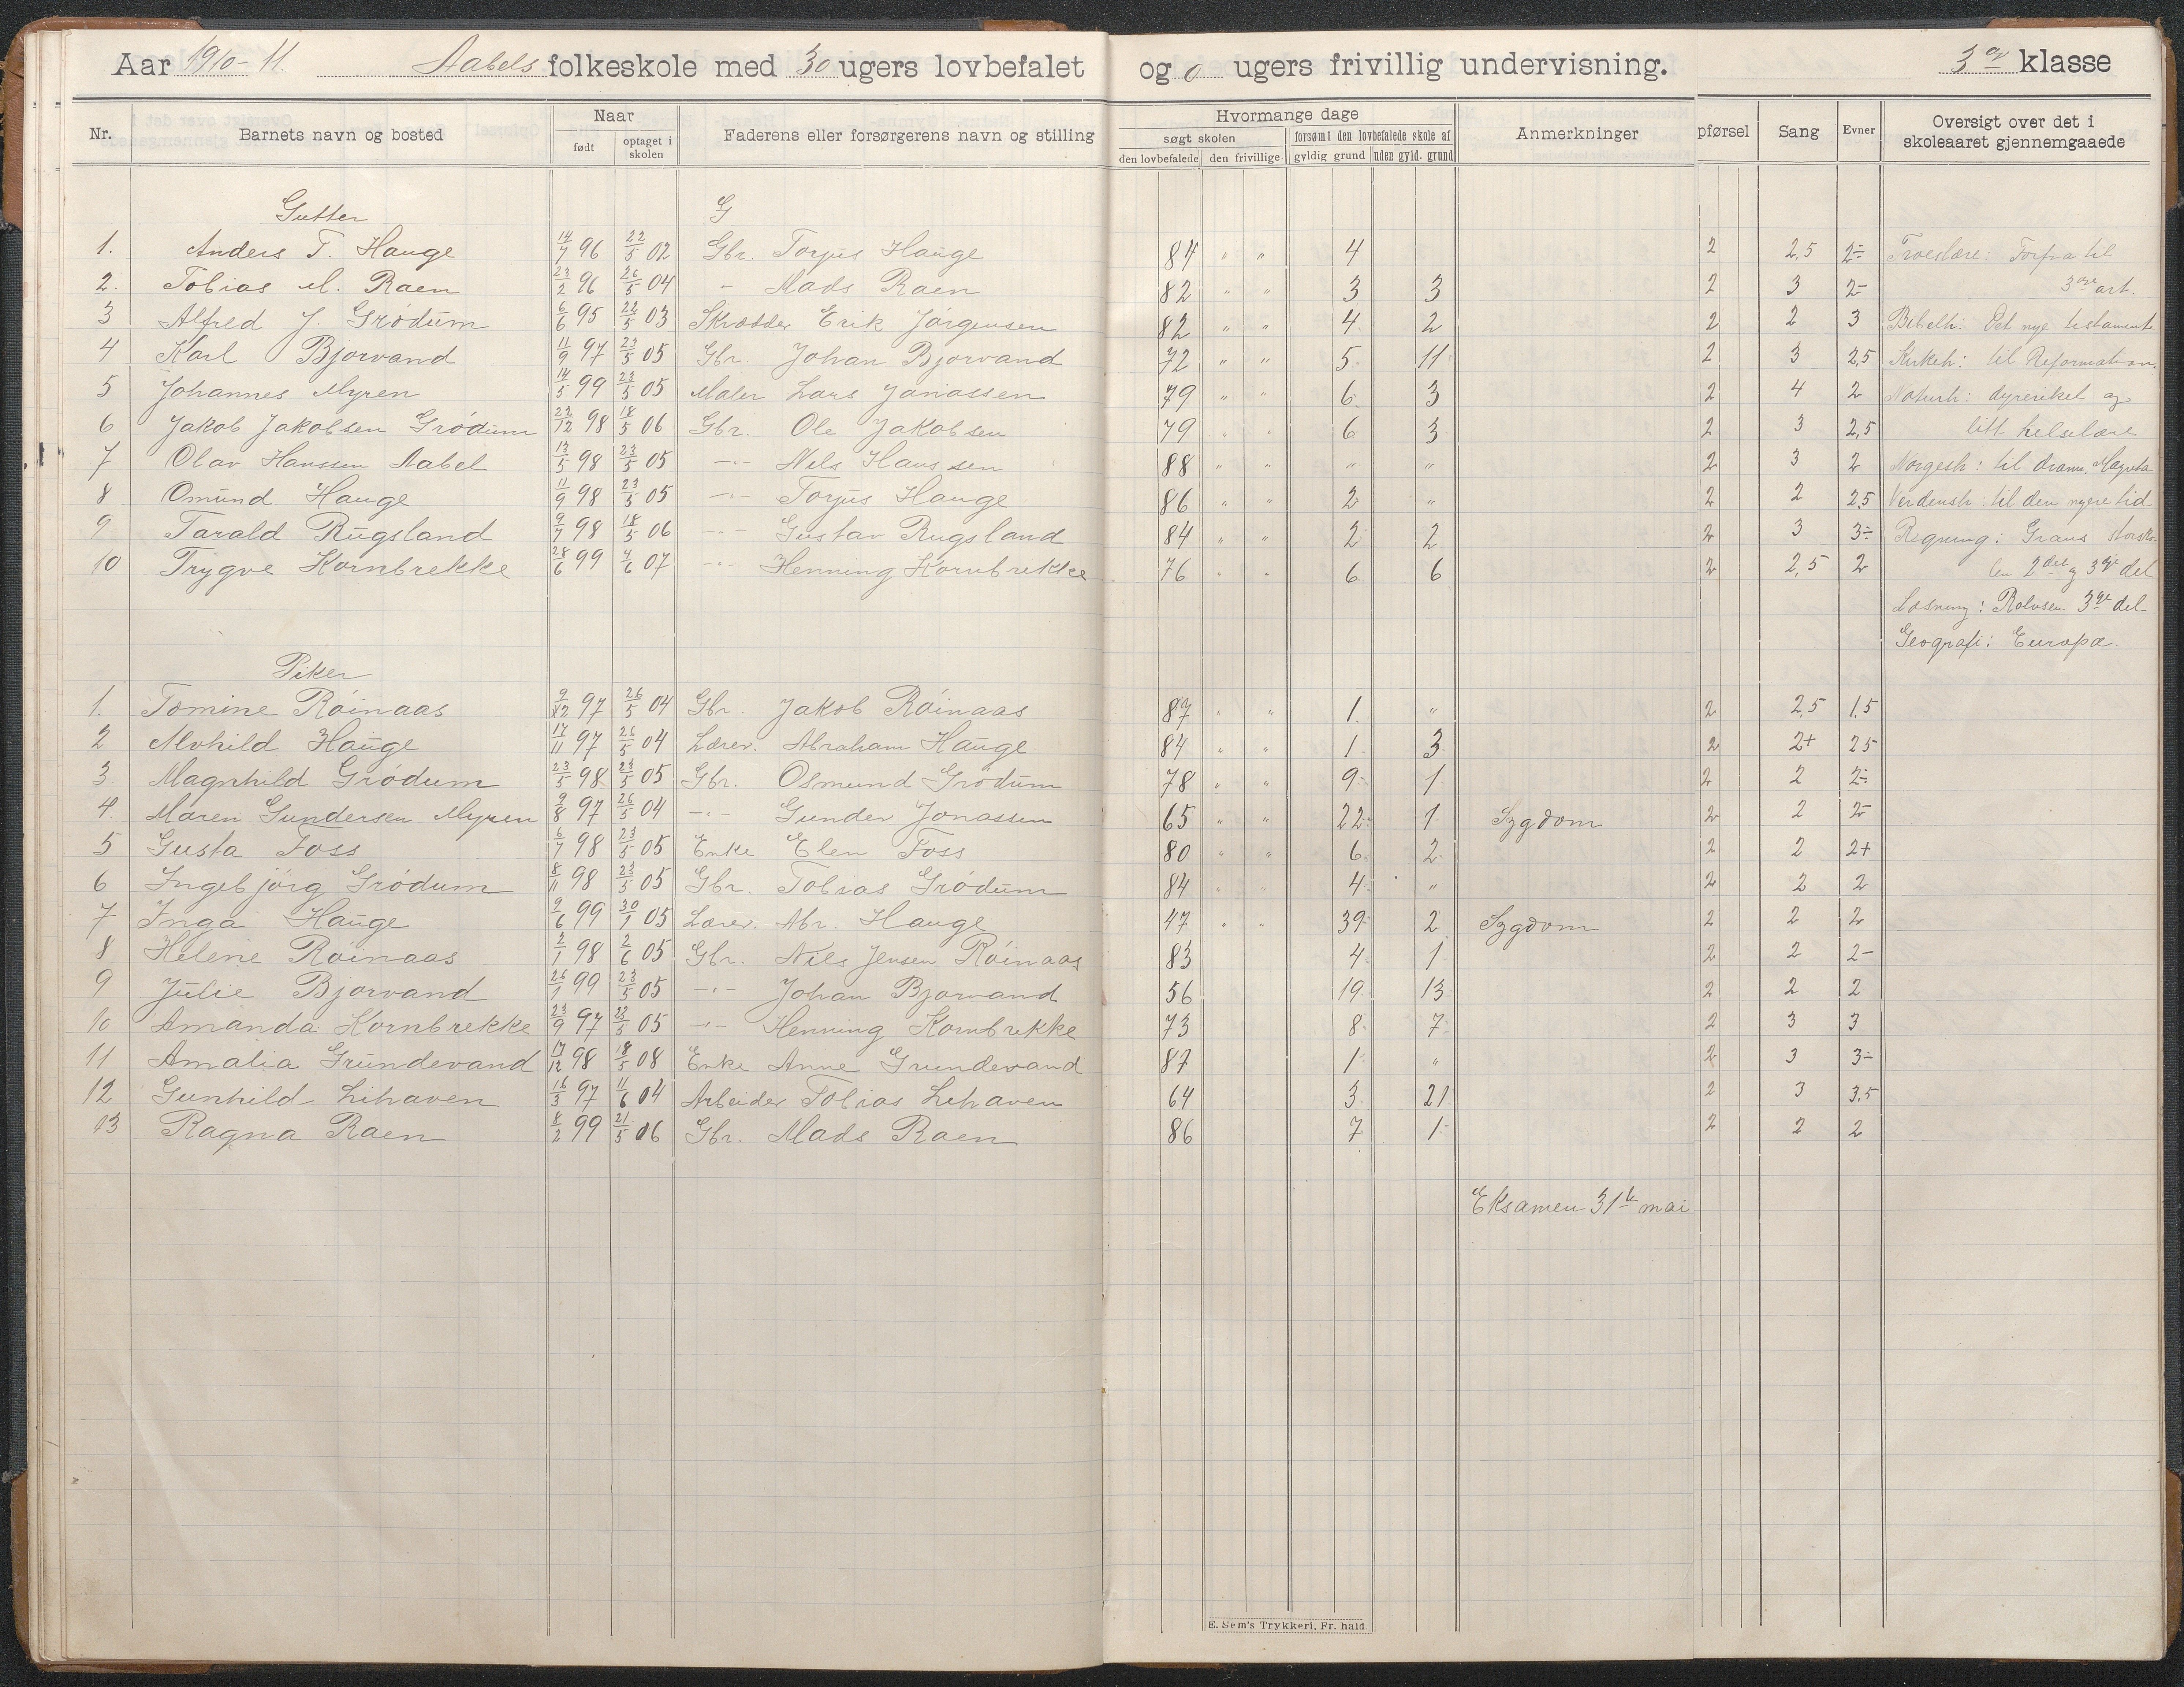 Aar 1910-11. Aabels folkeskole med 30 ugers lovbefalet og 0 ugers frivillig undervisning. 3dje klasse
Nr. Barnets navn og bosted Naar Faderens eller forsørgerens navn og stilling Hvormange dage Anmerkninger pførsel Sang Evner Oversigt over det i
født optaget i skolen søgt skolen forsømt den lovbefalede skole af skoleaaret gjennemgaaede
den lovbefalede den frivillige gyldig grund uden gyld. grund
Gutter G
1. Anders T. Hauge 14/7 96 22/5 02 Gbr. Torjus Hauge 84 " " 4 2 2,5 2÷ Troeslære: Forfra til
2. Tobias M. Raen 23/2 96 26/5 04 - Mads Raen 82 " " 3 3 2 3 2- 3dje art.
3 Alfred J. Grødum 6/6 95 22/5 03 Skrædder Erik Jørgensen 82 " " 4 2 2 2 3 Bibelh: Det nye testamente
4 Karl Bjorvand 11/9 97 23/5 05 Gbr. Johan Bjorvand 72 " " 5 11 2 3 2,5 Kirkeh: til Reformation.
5 Johannes Myren 14/5 99 23/5 05 Maler Lars Janiassen 79 " " 6 3 2 4 2 Naturh: dyreriket og
6 Jakob Jakobsen Grødum 22/12 98 18/5 06 Gbr. Ole Jakobsen 79 " " 6 3 2 3 2,5 litt helselære
7 Olav Hanssen Aabel 13/5 98 23/5 05 -"- Nils Hanssen 88 " " " " 2 3 2 Norgesh: til dronn. Magreta
8 Omund Hauge 11/9 98 23/5 05 -"- Torjus Hauge 86 " " 2 " 2 2 2,5 Verdensh: til den nyere tid
9 Tarald Rugsland 9/7 98 18/5 06 -"- Gustav Rugsland 84 " " 2 2 2 3 3÷ Regning: Graus storsko-
10 Trygve Kornbrekke 28/6 99 4/6 07 -"- Henning Kornbrekke 76 " " 6 6 2 2,5 2 len 2den og 3dje del
Læsning: Rolvsen 3dje del
Geografi: Europa.
Piker
1. Tomine Røinaas 9/12 97 26/5 04 Gbr. Jakob Røinaas 87 " " 1 " 2 2,5 1,5
2 Alvhild Hauge 17/11 97 26/5 04 Lærer. Abraham Hauge 84 " " 1 3 2 2+ 2,5
3. Magnhild Grødum 23/5 98 23/5 05 Gbr. Osmund Grødum 78 " " 9 1 2 2 2÷
4. Maren Gundersen Myren 9/8 97 26/5 04 -"- Gunder Jonassen 65 " " 22 1 Sygdom 2 2 2-
5 Gusta Foss 6/7 98 23/5 05 Enke Elen Foss 80 " " 6 2 2 2 2+
6 Ingebjørg Grødum 8/11 98 23/5 05 Gbr. Tobias Grødum 84 " " 4 " 2 2 2
7 Inga Hauge 9/6 99 30/1 05 Lærer. Abr. Hauge 47 " " 39 2 Sygdom 2 2 2
8 Helene Røinaas 2/1 98 2/6 05 Gbr. Nils Jensen Røinaas 83 4 1 2 2 2-
9 Julie Bjorvand 26/1 99 23/5 05 -"- Johan Bjorvand 56 19 13 2 2 2
10 Amanda Kornbrekke 23/9 97 23/5 05 -"- Henning Kornbrekke 73 8 7 2 3 3
11 Amalia Grundevand 17/12 98 18/5 08 Enke Anne Grundevand 87 1 " 2 3 3÷
12 Gunhild Lihaven 16/3 97 11/6 04 Arbeider Tobias Lihaven 64 3 21 2 3 3,5
13 Ragna Raen 8/2 99 21/5 06 Gbr. Mads Raen 86 7 1 2 2 2
Eksamen 31te mai
E. Sem's Trykkeri, Fr. hald